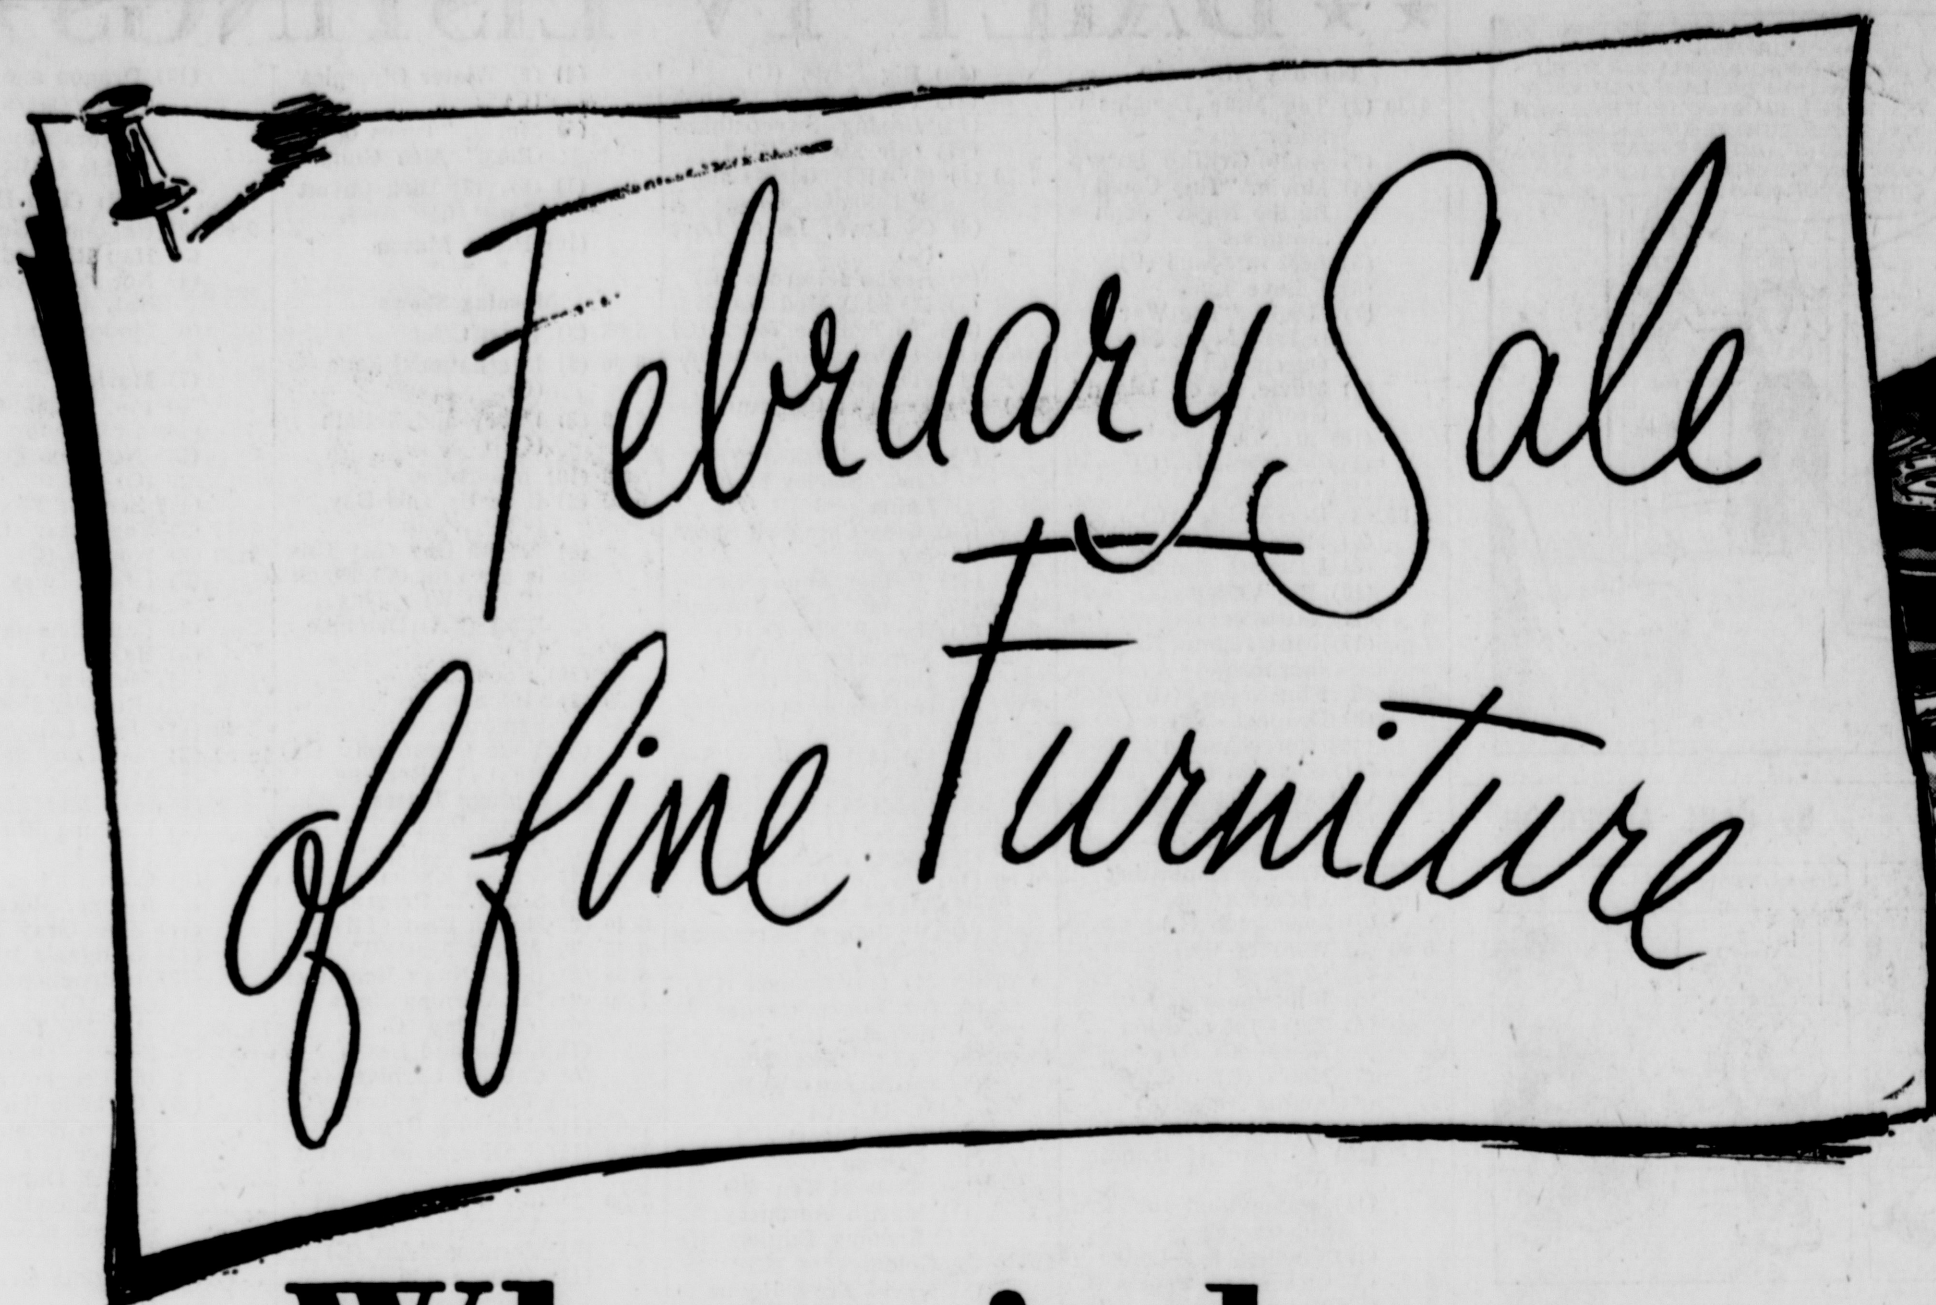 February Sale
of fine Furniture